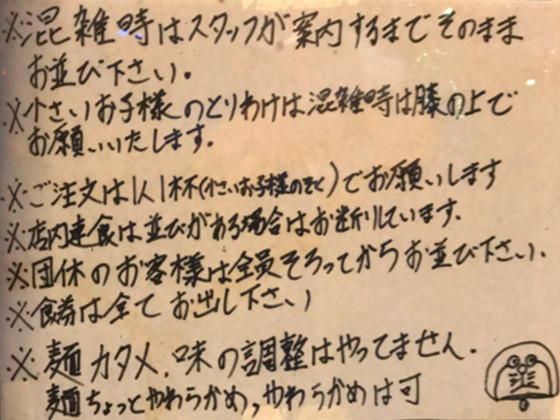 ※混雑時はスタッフが案内するまでそのまま
お並び下さい。
※小さいお子様のとりわけは混雑時は膝の上で
お願いいたします。
※ご注文は1人1杯(小さいお子様のぞく)でお願いします
※店内連食は並びがある場合はお断りしています.
※団体のお客様は全員そろってからお並び下さい.
※食券は全てお出し下さい
※麺カタメ、味の調整はやってません.
麺ちょっとやわらかめ,やわらかめは可